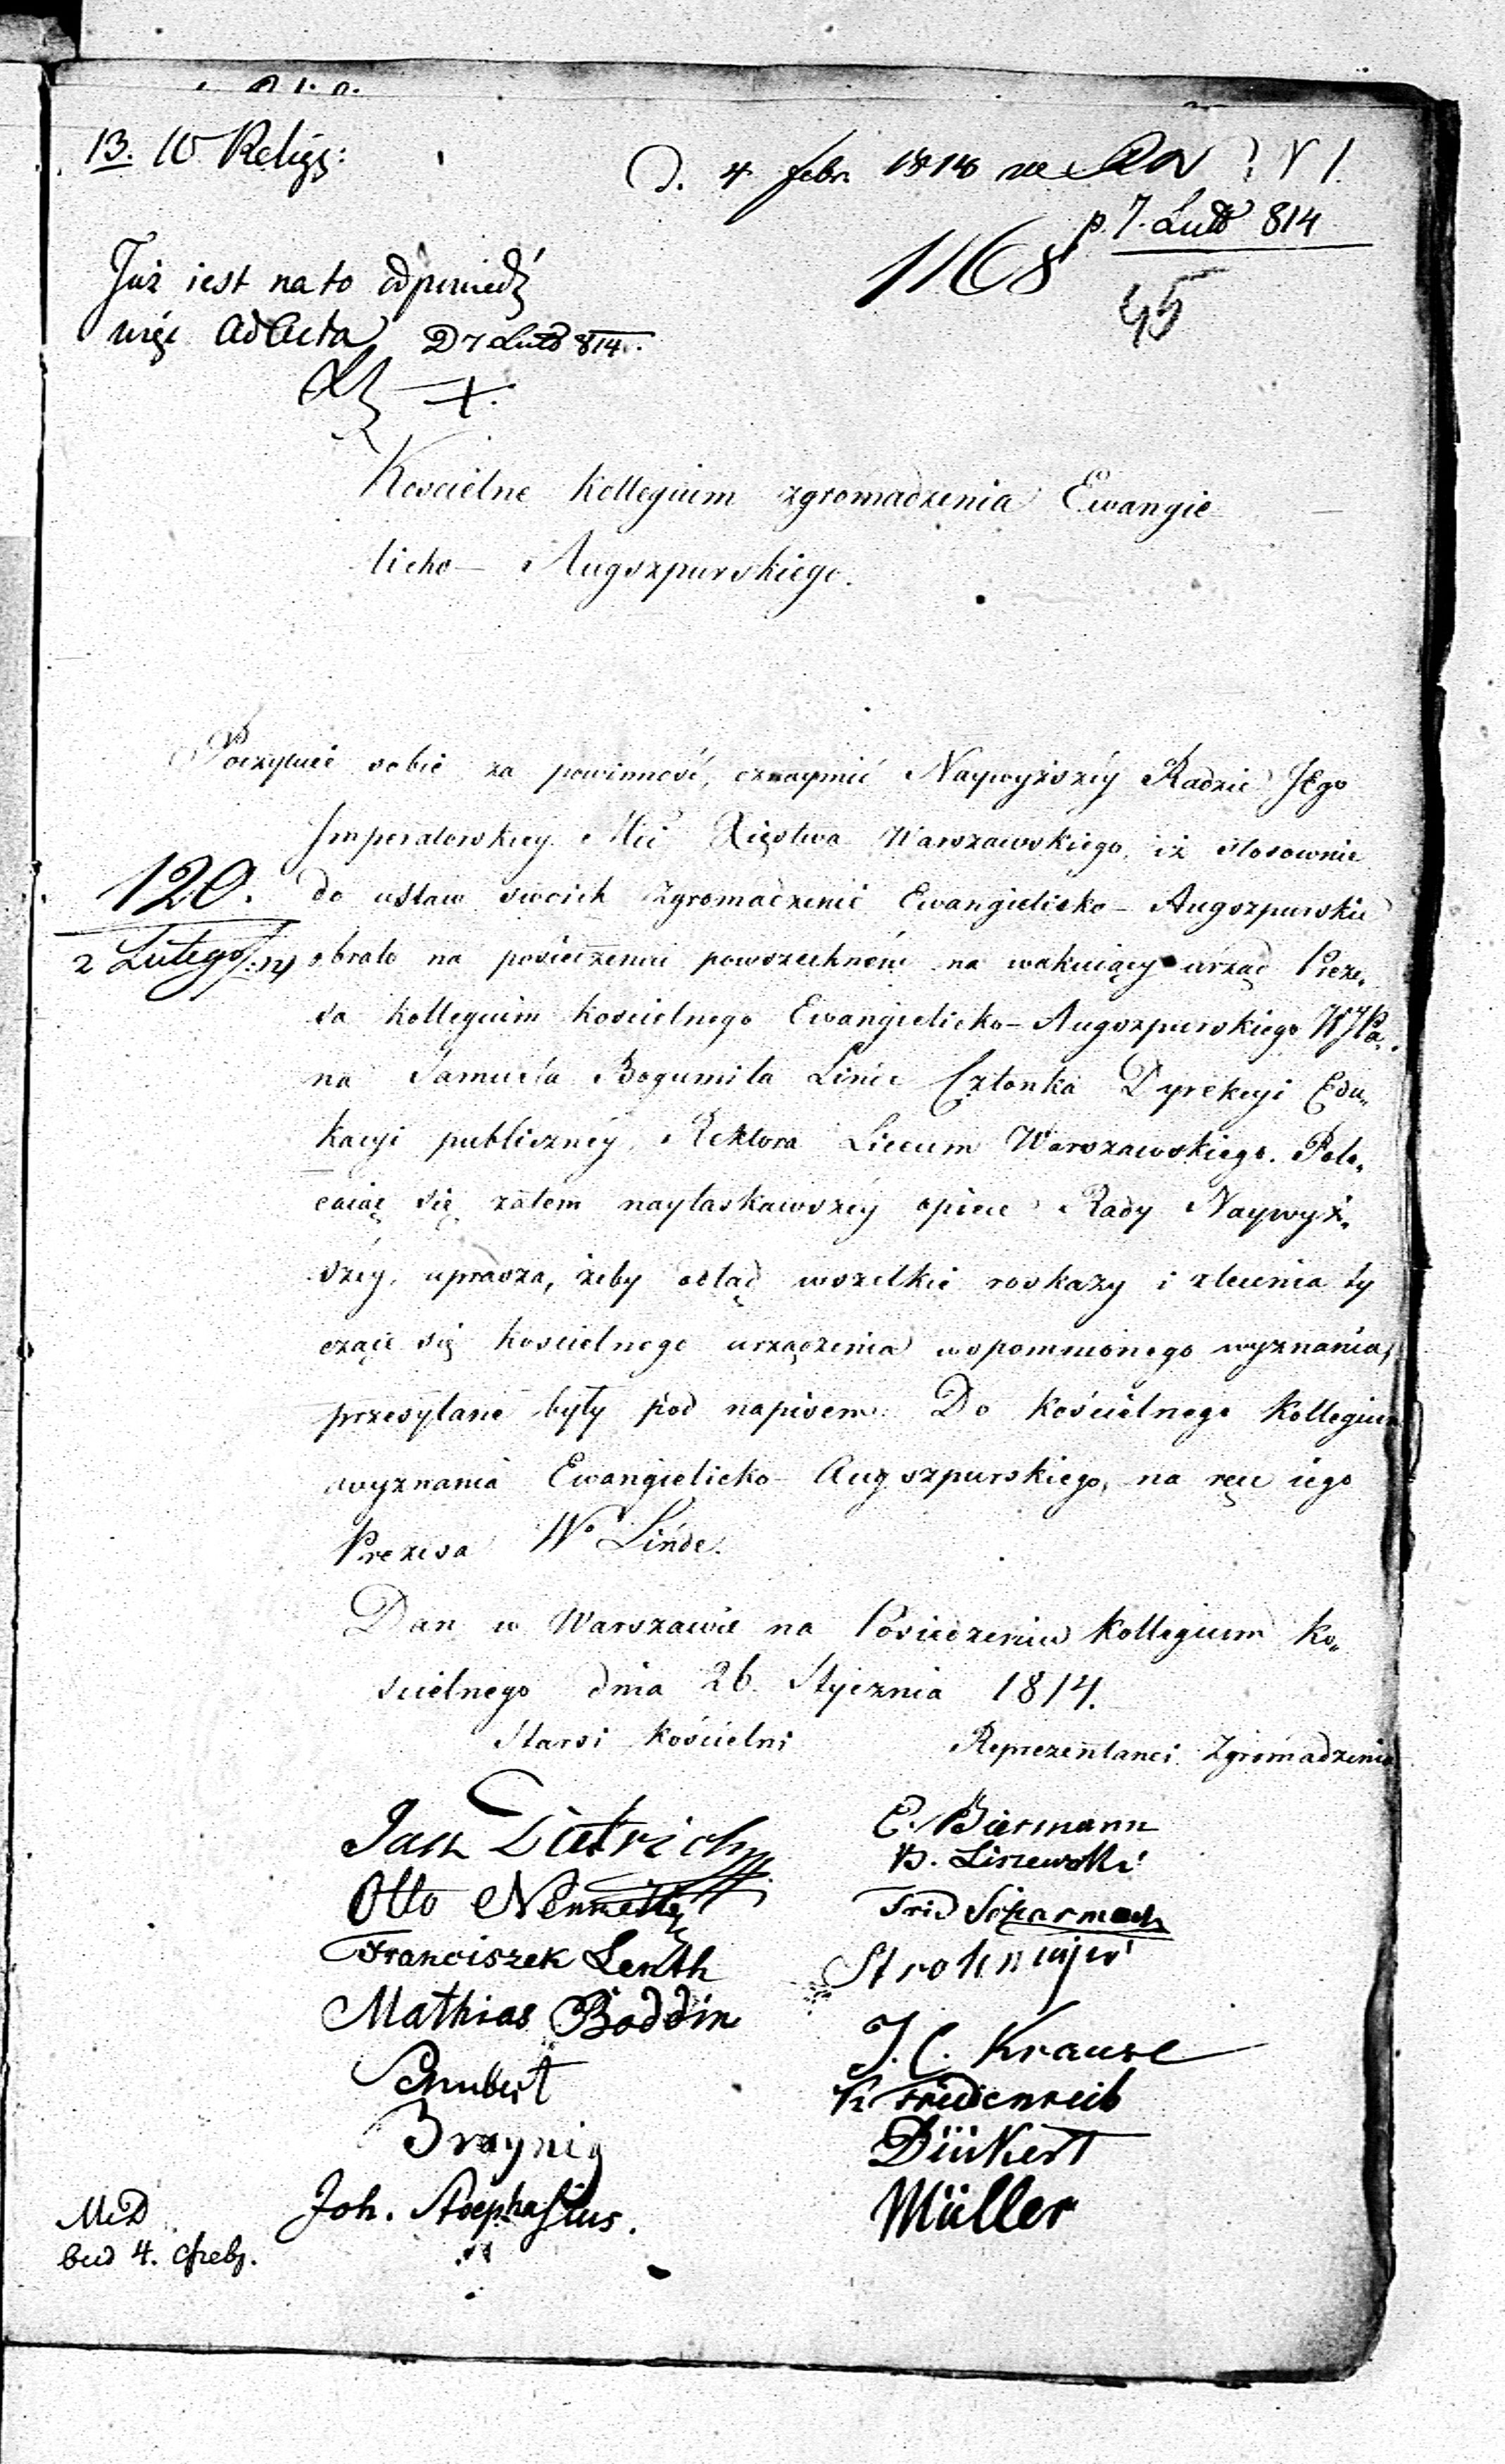 13. W Religij:
D. 4 febr. 1814
p. 7. Lutº 814
1168
45
Już iest na to odpowiedź
więc ad Acta D 7 Lutº 814.
Koscielne kollegium zgromadzenia Ewangie
licko - Augszpurskiego.
Poczytuie sobie za powinność, oznaymić Naywyższéy Radzie JEgo
Imperatorskiey Mci Xięstwa Warszawskiego, iż stosownie
120.
do ustaw swoich zgromadzenie Ewangielicko - Augszpurskie
2 Lutego
obrało na posiedzeniu powszechném na wakuiący urząd Preze„
sa kollegium koscielnego Ewangielicko - Augszpurskiego WJPa„
na Samuela Bogumiła Linde Członka Dyrekcyi Edu„
kacyi publicznéy, Rektora Liceum Warszawskiego. Pole„
caiąc się zatem nayłaskawszéy opiece Rady Naywyż„
széy, uprasza, żeby odtąd wszelkie roskazy i zlecenia ty
czące się koscielnego urządzenia wspomnionego wyznania,
przesyłane były pod napisem: Do kościelnego kollegium
wyznania Ewangielicko - Augszpurskiego, na ręce iego
Prezesa Wº Linde.
Dan w Warszawie na Posiedzeniu kollegium ko„
scielnego dnia 26. Stycznia 1814.
Starsi kościelni
Reprezentanci Zgromadzenia
Jan Dietrich
C. Biermann
B. Liszewski
Otto
Frid
Franciszek Lenth
Mathias Boddin
J. C. Krause
Schubert
Müller
Joh.
bud 4.